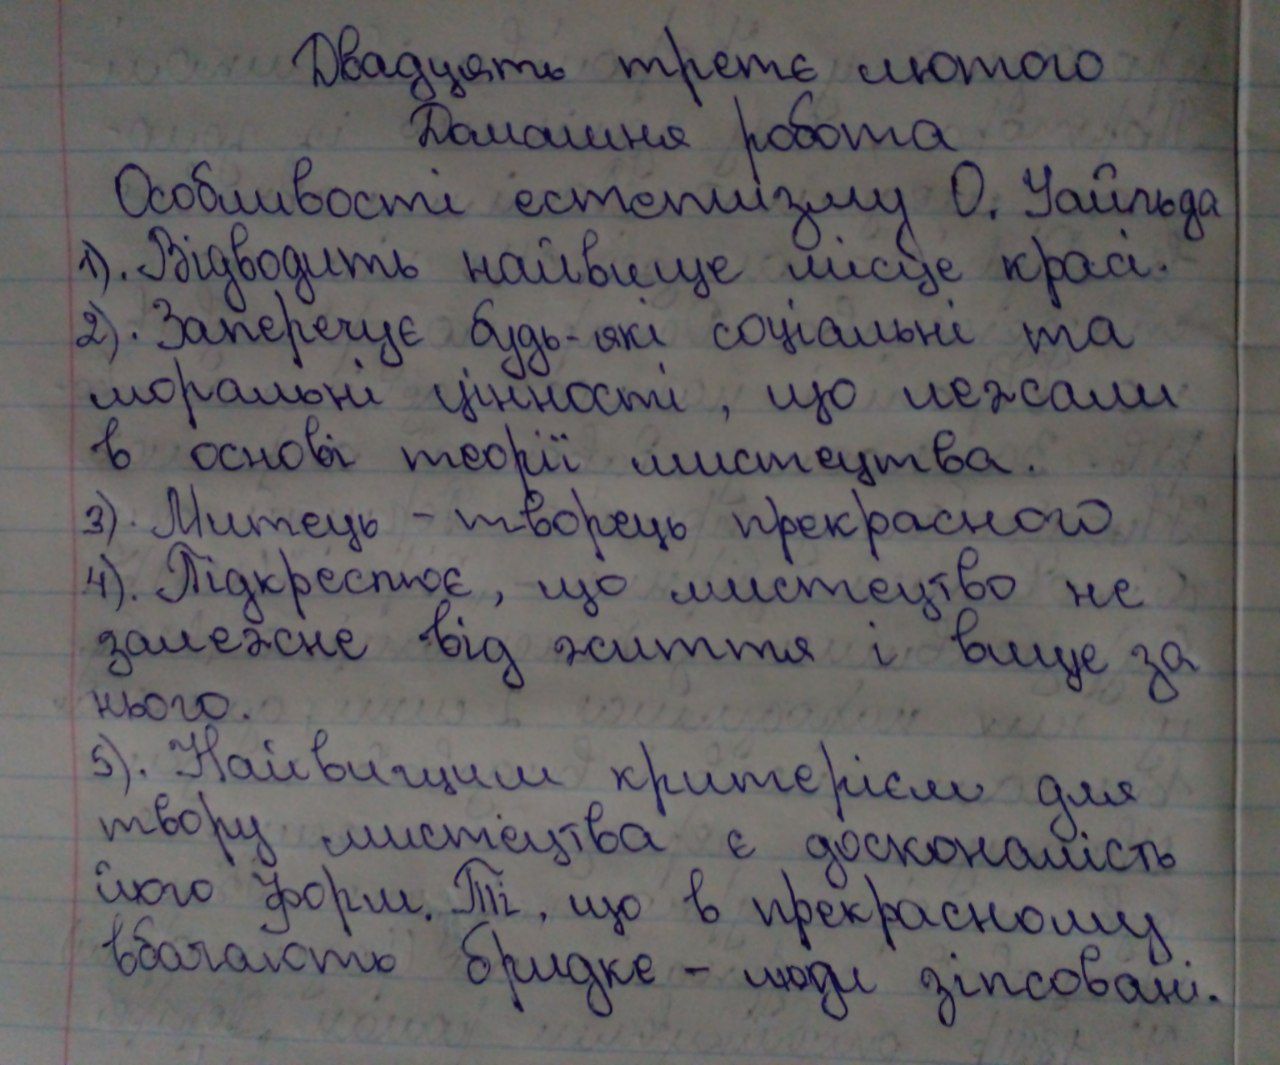 Двадцять третє лютого
Домашня робота
Особливості естетизму О. Уайльда
1). Відводить найвище місце красі.
2). Заперечує будь-які соціальні та
моральні цінності, що лежали
в основі теорії мистецтва.
3). Митець - творець прекрасного
4). Підкреслює, що мистецтво не
залежне від життя і вище за
нього.
5). Найвищим критерієм для
твору мистецтва є досконалість
його форм. Ті, що в прекрасному
вбачають бридке - люди зіпсовані.